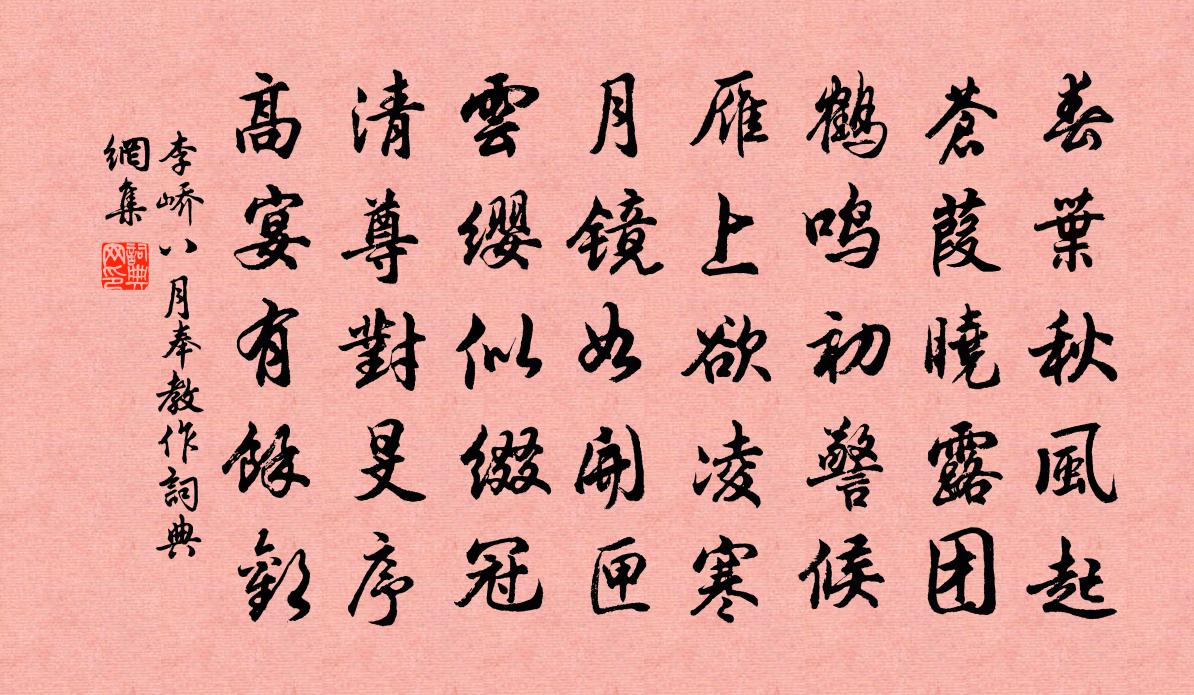 春葉秋風起
蒼葭曉露团
鶴鸣初警候
雁上欲凌寒
月镜如開匣
雲缨似缀冠
清尊對旻序
高宴有餘歡
李嶠八月奉教作詞典
網集
詞典
网印